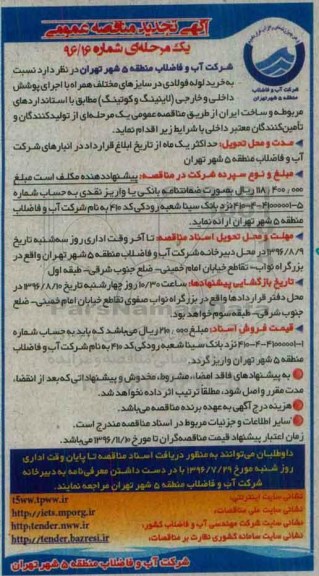 آگهی تجدید مناقصه عمومی
یک مرحله‌ای شماره ۹۶/۱۶
شرکت آب و فاضلاب
منطقه ۵ شهر تهران
شرکت آب و فاضلاب منطقه ۵ شهر تهران در نظر دارد نسبت
به خرید لوله فولادی در سایزهای مختلف همراه با اجرای پوشش
داخلی و خارجی (لاینینگ و کوتینگ) مطابق با استانداردهای
مربوطه و ساخت ایران از طریق مناقصه عمومی یک مرحله‌ای از تولیدکنندگان و
تأمین‌کنندگان معتبر داخلی با شرایط زیر اقدام نماید.
مدت و محل تحویل: حداکثر یک ماه از تاریخ ابلاغ قرارداد در انبارهای شرکت
آب و فاضلاب منطقه ۵ شهر تهران
مبلغ و نوع سپرده شرکت در مناقصه: پیشنهاد دهنده مکلف است مبلغ
ریال بصورت ضمانتنامه بانکی یا واریز نقدی به حساب شماره
نزد بانک سینا شعبه رودکی کد ۴۱۰ به نام شرکت آب و فاضلاب
منطقه ۵ شهر تهران ارائه نماید.
مهلت و محل تحویل اسناد مناقصه: تا آخر وقت اداری روز سه‌شنبه تاریخ
۱۳۹۶/۸/۹ در محل دبیرخانه شرکت آب و فاضلاب منطقه ۵ شهر تهران واقع در
بزرگراه نواب- تقاطع خیابان امام خمینی- ضلع جنوب شرقی- طبقه اول
تاریخ بازگشایی پیشنهادها: ساعت ۱۰/۳۰ روز چهارشنبه تاریخ ۱۳۹۶/۸/۱۰ در
محل دفتر قراردادها واقع در بزرگراه نواب صفوی تقاطع خیابان امام خمینی- ضلع
جنوب شرقی- طبقه سوم خواهد بود.
قیمت فروش اسناد: مبلغ ۲۱۰٫۰۰۰ ریال می‌باشد که باید به حساب شماره
نزد بانک سینا شعبه رودکی کد ۴۱۰ به نام شرکت آب و فاضلاب
منطقه ۵ شهر تهران واریز گردد.
به پیشنهادهای فاقد امضاء، مشروط، مخدوش و پیشنهاداتی که بعد از انقضاء
مدت مقرر واصل شود، مطلقاً ترتیب اثر داده نخواهد شد.
هزینه درج آگهی به عهده برنده مناقصه می‌باشد.
سایر اطلاعات و جزئیات مربوط در اسناد مناقصه مندرج است.
زمان اعتبار پیشنهاد قیمت مناقصه‌گران تا مورخ ۱۳۹۶/۱۱/۱۰ می‌باشد.
داوطلبان می‌توانند به منظور دریافت اسناد مناقصه تا پایان وقت اداری
روز شنبه مورخ ۱۳۹۶/۷/۲۹ با در دست داشتن معرفی‌نامه به دبیرخانه
شرکت آب و فاضلاب منطقه ۵ شهر تهران مراجعه نمایند.
نشانی سایت اینترنتی: t5ww.tpww.ir
نشانی سایت ملی مناقصات: http://iets.mporg.ir
نشانی سایت شرکت مهندسی آب و فاضلاب کشور: http:tender.nww.ir
نشانی سایت سامانه کشوری نظارت بر مناقصات: http://tender.bazresi.ir
شرکت آب و فاضلاب منطقه ۵ شهر تهران